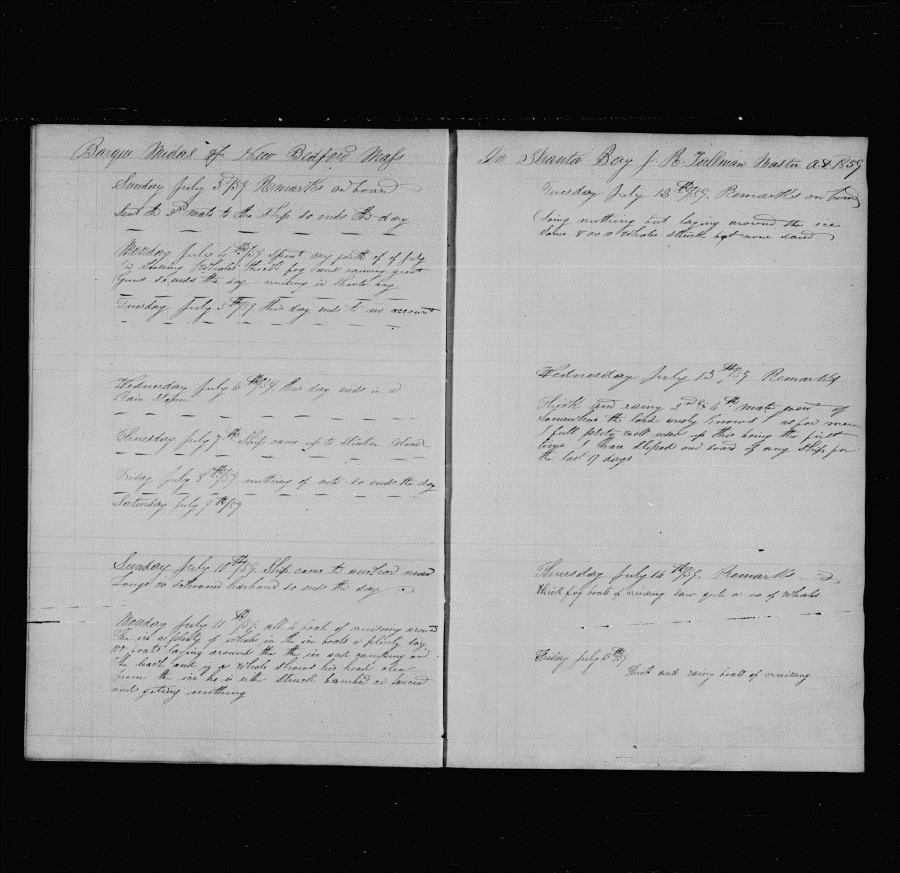 Barque Midas of New Bedford Mass
Sunday July 3d/59 Remarks on board
Sent the 3d mate to the ship so ends the day
Monday July 4th/59 spent my forth of July
in whaling thick fog and raining great
Guns so ends the day cruising in Shanta bay
Tuesday July 5th/59 this day ends to no account
Wednesday July 6th/59 this day ends in a
Rain Storm
Thursday July 7th Ship came up to Island
Friday July 8th/59 nuthing of note so ends the day
Saturday July 9th/59
Sunday July 10th/59. Ship came to anchor near
harbour so ends the day
Monday July 11th/59. all 4 boats of cruising around
the ice a plenty of whales in the ice boats a plenty say
100 boats laying around the ice and camping on
the beach and if a Whale shows his head
from the ice he is struck or lanced
and geting nuthing
In Shanta Bay J. R. Tallman Master AD 1859
Tuesday July 12th/59. Remarks on board
doing nuthing but laying around the ice
some 8 or 10 Whales struck but none saved
Wednesday July 13th/59 Remarks
Thick and rainy 2nd & 4th mate gone of
somewhere the lord only knows as for me
I full this being the first
time I have sleped on board of any Ship for
the last 17 days
Thursday July 14th/59. Remarks
thick fog boats of cruising saw quite a no of Whales
Friday July 15th/59
thick and rainy boats of cruising